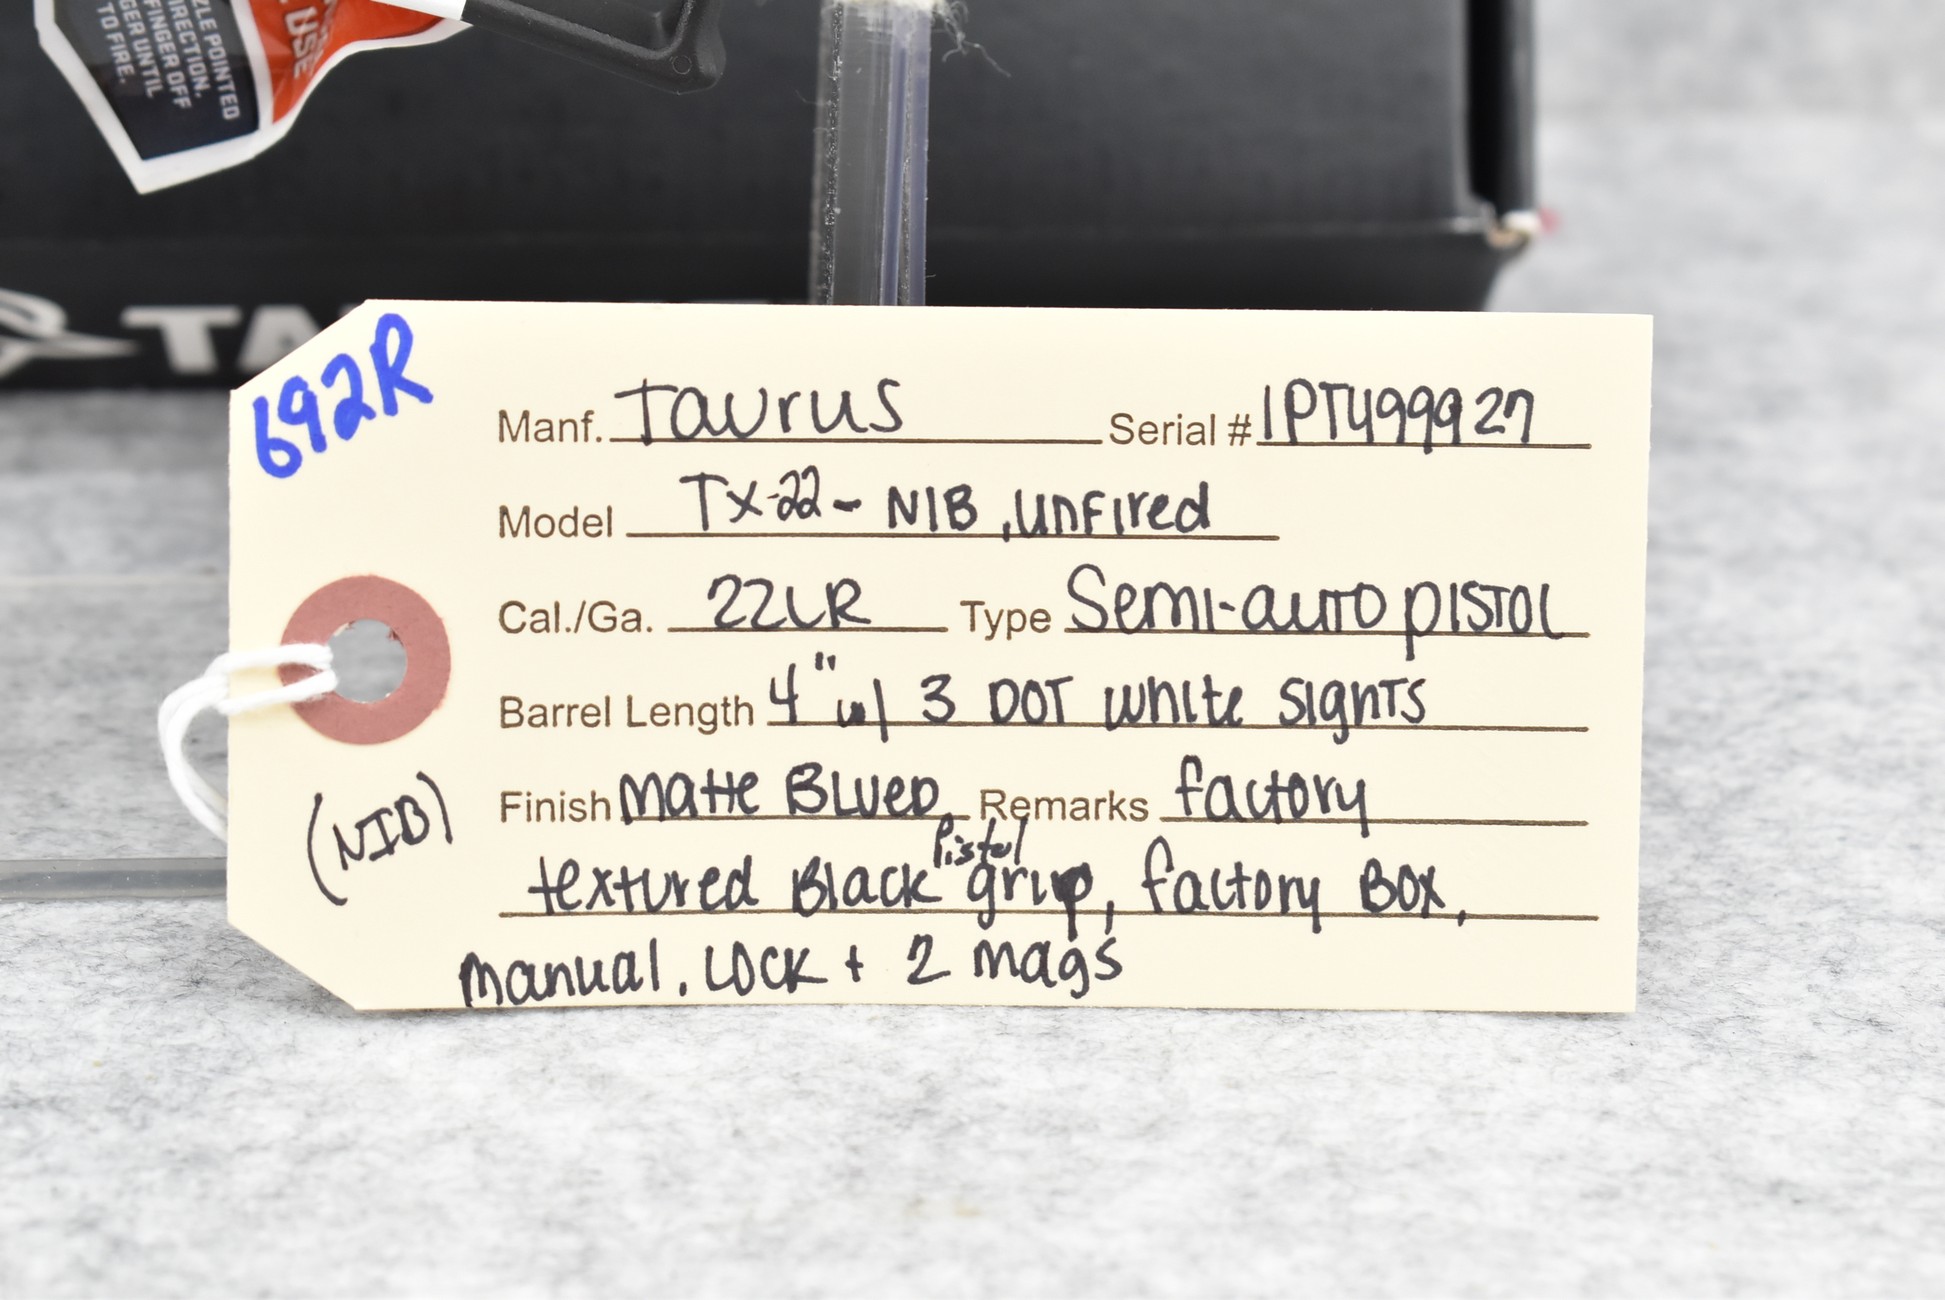 ZLE POINTED
IRECTION.
FINGER OFF
GER UNTIL
TO FIRE.
USE
TA
692R
Manf. Taurus Serial # 1PT499927
Model TX-22 - NIB, unfired
Cal./Ga. 22LR Type Semi-auto pistol
Barrel Length 4" w/ 3 DOT white sights
Finish Matte Blued, Remarks factory
pistol
textured Black grip, factory Box,
manual, LOCK + 2 mags
(NIB)